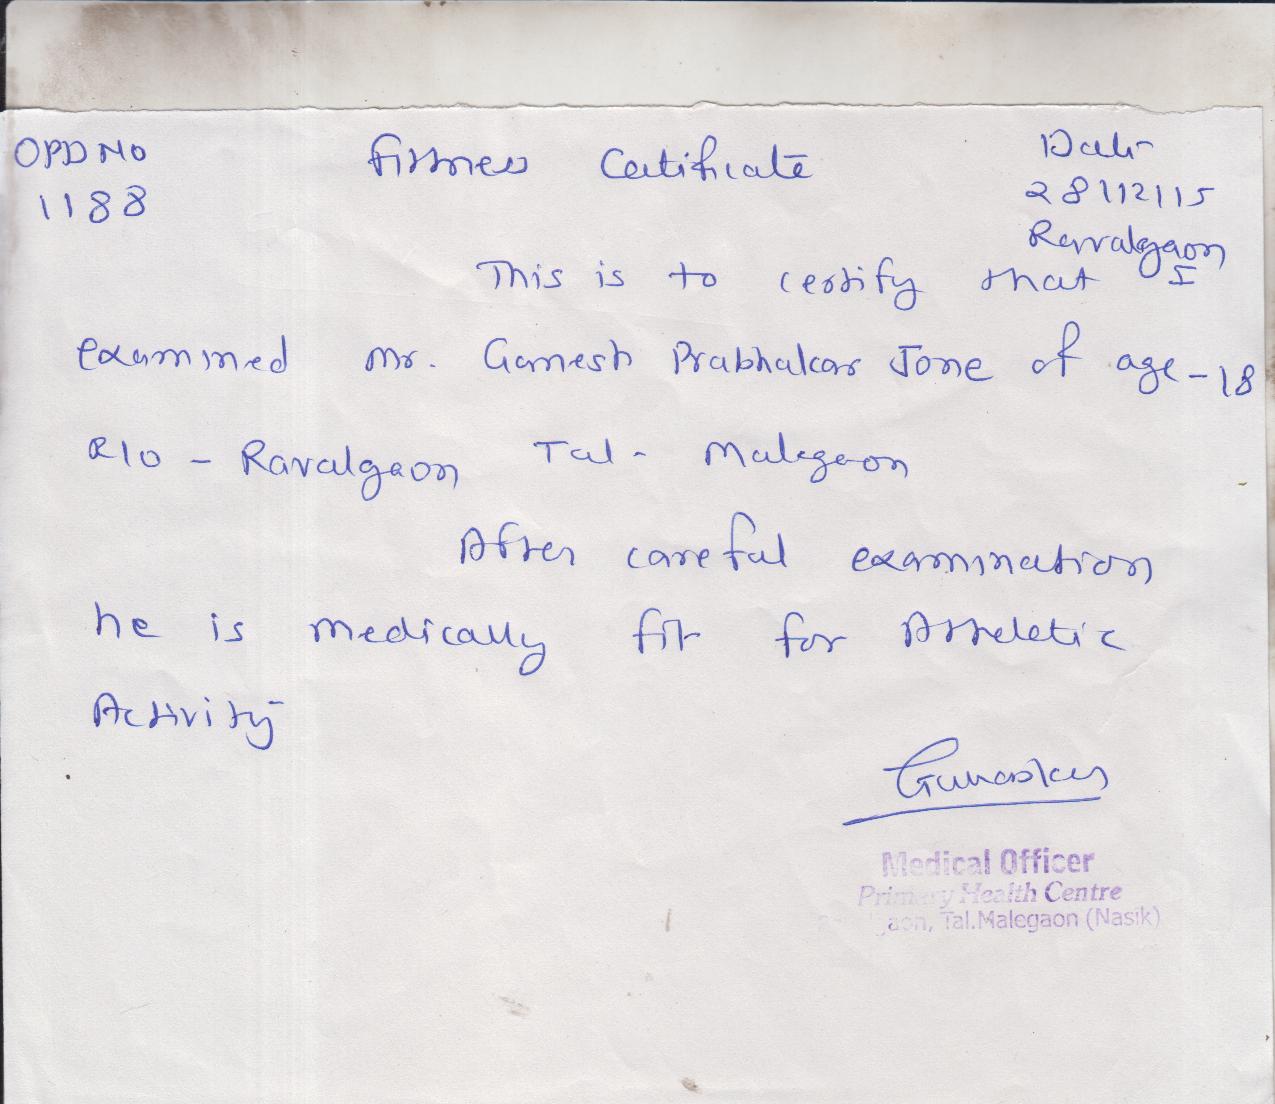 OPD NO
1188
Fittness Certificate
Date
28/12/15
Ravalgaon
This is to certify that I
examined Mr. Ganesh Prabhakar Jone of age - 18
R/o - Ravalgaon Tal - Malegaon
After careful examination
he is medically fit for Atheletic
Activity
Medical Officer
Primary Health Centre
gaon, Tal.Malegaon (Nasik)